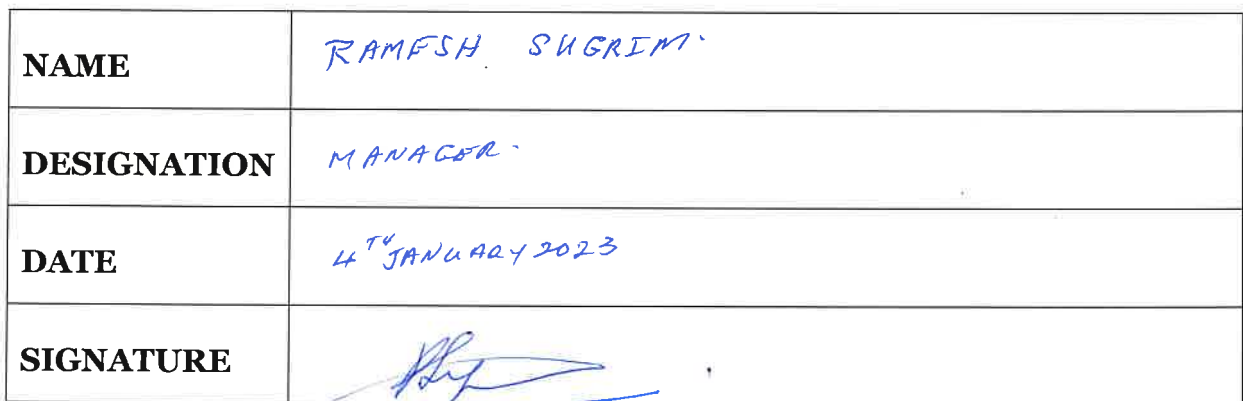 NAME RAMESH SUGRIM.
DESIGNATION MANAGER.
DATE 4TH JANUARY 2023
SIGNATURE